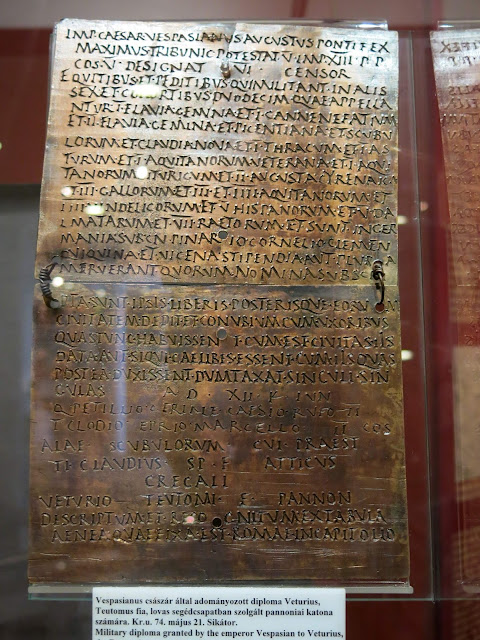 IMP·CAESAR·VESPASIANVS·AVGVSTVS·PONTIFEX
MAXIMVS·TRIBVNIC·POTESTAT·V·IMP·XIII·P·P
COS·V·DESIGNAT VI CENSOR
EQVITIBVS·ET·PEDITIBVS·QVI·MILITANT·IN·ALIS
SEX·ET·COHORTIBVS·DVODECIM·QVAE·APPELLA
NTVR·I·FLAVIA·GEMINA·ET·I·CANNENEFATIVM
ET·II·FLAVIA·GEMINA·ET·PICENTIANA·ET·SCVBV
LORVM·ET·CLAVDIA·NOVA·ET·I·THRACVM·ET·I·AS
TVRVM·ET·I·AQVITANORVM·VETERANA·ET·I·AQVI
TANORVM·BITVRIGVM·ET·II·AVGVSTA·CYRENAICA
ET·III·GALLORVM·ET·III·ET·IIII·AQVITANORVM·ET
IIII·VINDELICORVM·ET·V·HISPANORVM·ET·V·DA
LMATARVM·ET·VII·RAETORVM·ET·SVNT·IN·GER
MANIA·SVB·CN·PINARIO·CORNELIO·CLEMEN
QVI·QVINA·ET·VICENA·STIPENDIA·AVT·PLVRA
MERVERANT·QVORVM·NOMINA·SVBSC
PTA·SVNT·IPSIS·LIBERIS·POSTERISQVE·EORVM
CIVITATEM·DEDIT·ET·CONVBIVM·CVM·VXORIBVS
QVAS·TVNC·HABVISSENT·CVM·EST·CIVITAS·IIS
DATA·AVT·SIQVI·CAELIBES·ESSENT·CVM·IIS·QVAS
POSTEA·DVXISSENT·DVMTAXAT·SINGVLI·SIN
GVLAS A D XII K IVN
Q·PETILLIO·CERIALE·CAESIO·RVFO·II
T·CLODIO·EPRIO·MARCELLO II COS
ALAE SCVBVLORVM CVI PRAEST
TI·CLAVDIVS SP F ATTICVS
GREGALI
VETVRIO TEVTOMI F PANNON
DESCRIPTVM·ET·RECOGNITVM·EX·TABVLA
AENEA·QVAE·FIXA·EST·ROMAE·IN·CAPITOLIO
Vespasianus császár által adományozott diploma Veturius,
Teutomus fia, lovas segédcsapatban szolgált pannoniai katona
számára. Kr.u. 74. május 21. Sikátor.
Military diploma granted by the emperor Vespasian to Veturius,